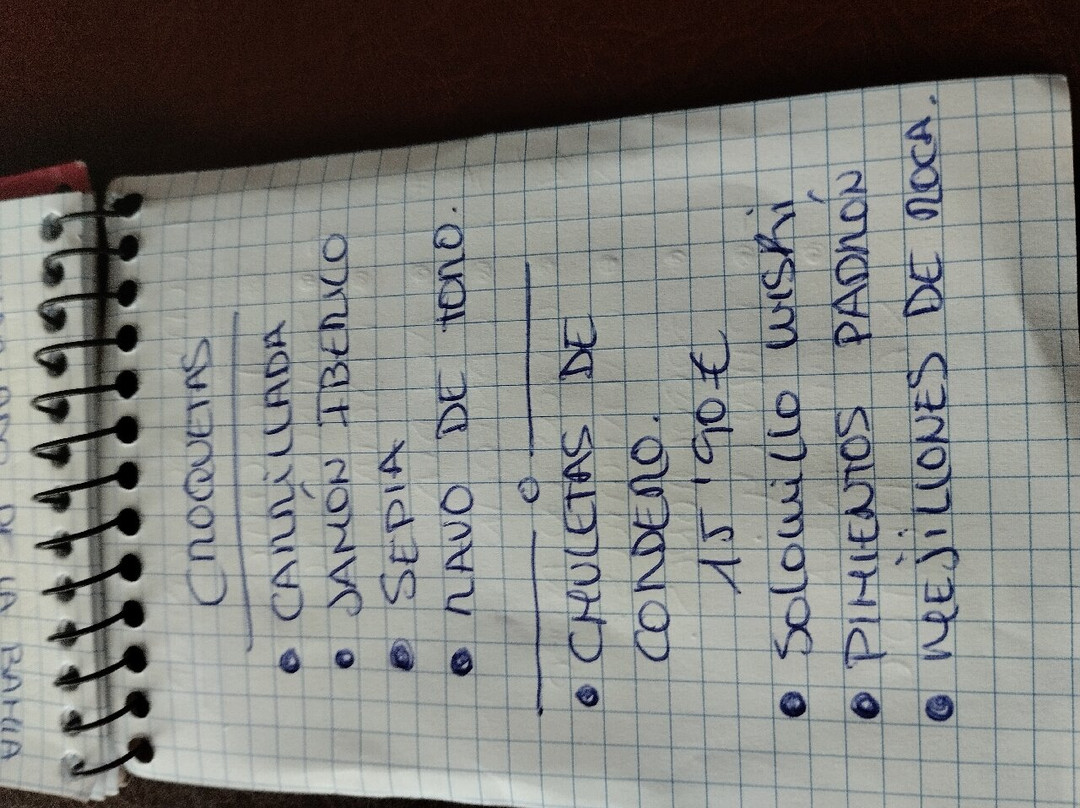 CROQUETAS
• CARRILLADA
• JAMÓN IBERICO
• SEPIA
• RAVO DE TORO.
• CHULETAS DE
CORDERO.
15'90€
• SOLOMILLO WISKI
• PIMIENTOS PADRÓN
• MEJILLONES DE ROCA.